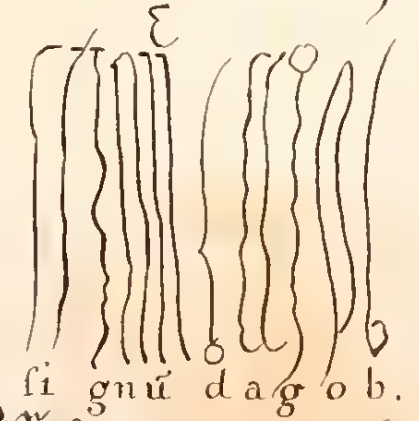 ſi gnū dagob.